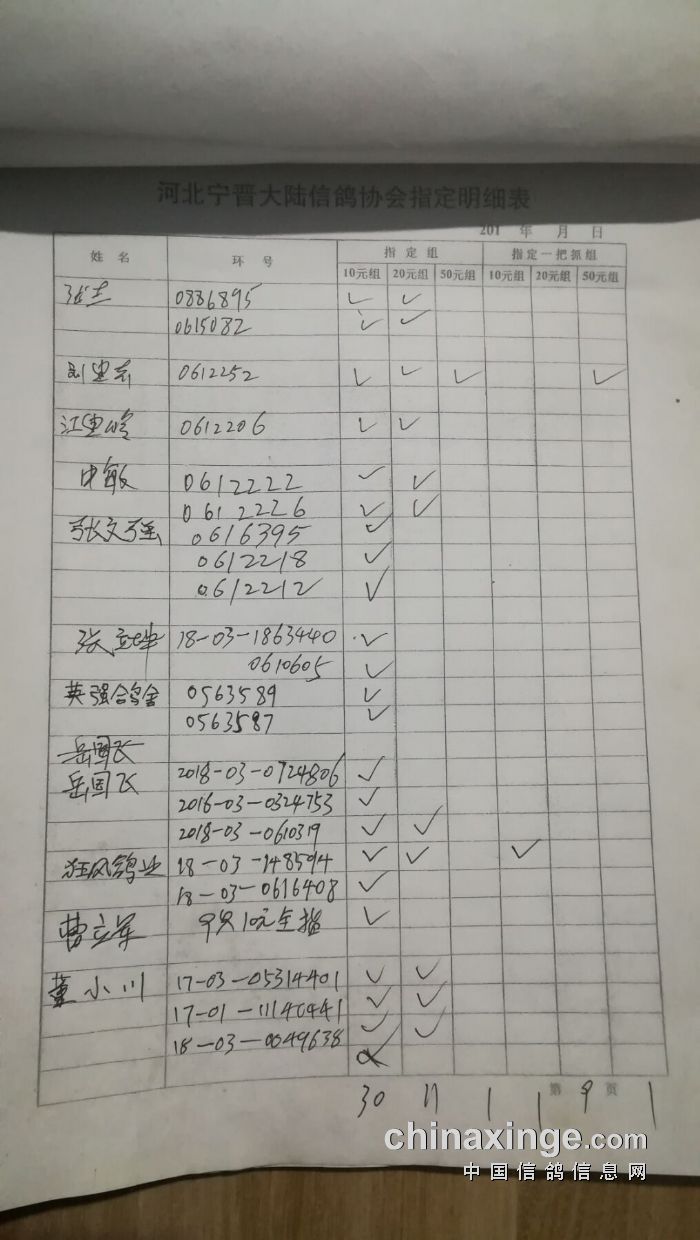 河北宁晋大陆信鸽协会指定明细表
201 年 月 日
姓名 环号 指定组 指定一把抓组
10元组 20元组 50元组 10元组 20元组 50元组
0886895 ✓ ✓
0615082 ✓ ✓
0612252 ✓ ✓ ✓ ✓
0612206 ✓ ✓
申敏 0612222 ✓ ✓
0612226 ✓ ✓
张文强 0616395 ✓
0612218 ✓
0612212 ✓
张立坤 18-03-1863440 ✓
0610605 ✓
英强鸽舍 0563589 ✓
0563587 ✓
岳国飞
岳国飞 2018-03-0724806 ✓
2016-03-0324753 ✓
2018-03-0610319 ✓ ✓
狂风鸽业 18-03-148594 ✓ ✓ ✓
18-03-0616408 ✓
曹立军 9只10元全指 ✓
董小川 17-03-05314401 ✓ ✓
17-01-11140441 ✓ ✓
18-03-0049638 ✓ ✓
30 11 1 1 第 9 页 1
chinaxinge.com
中国信鸽信息网